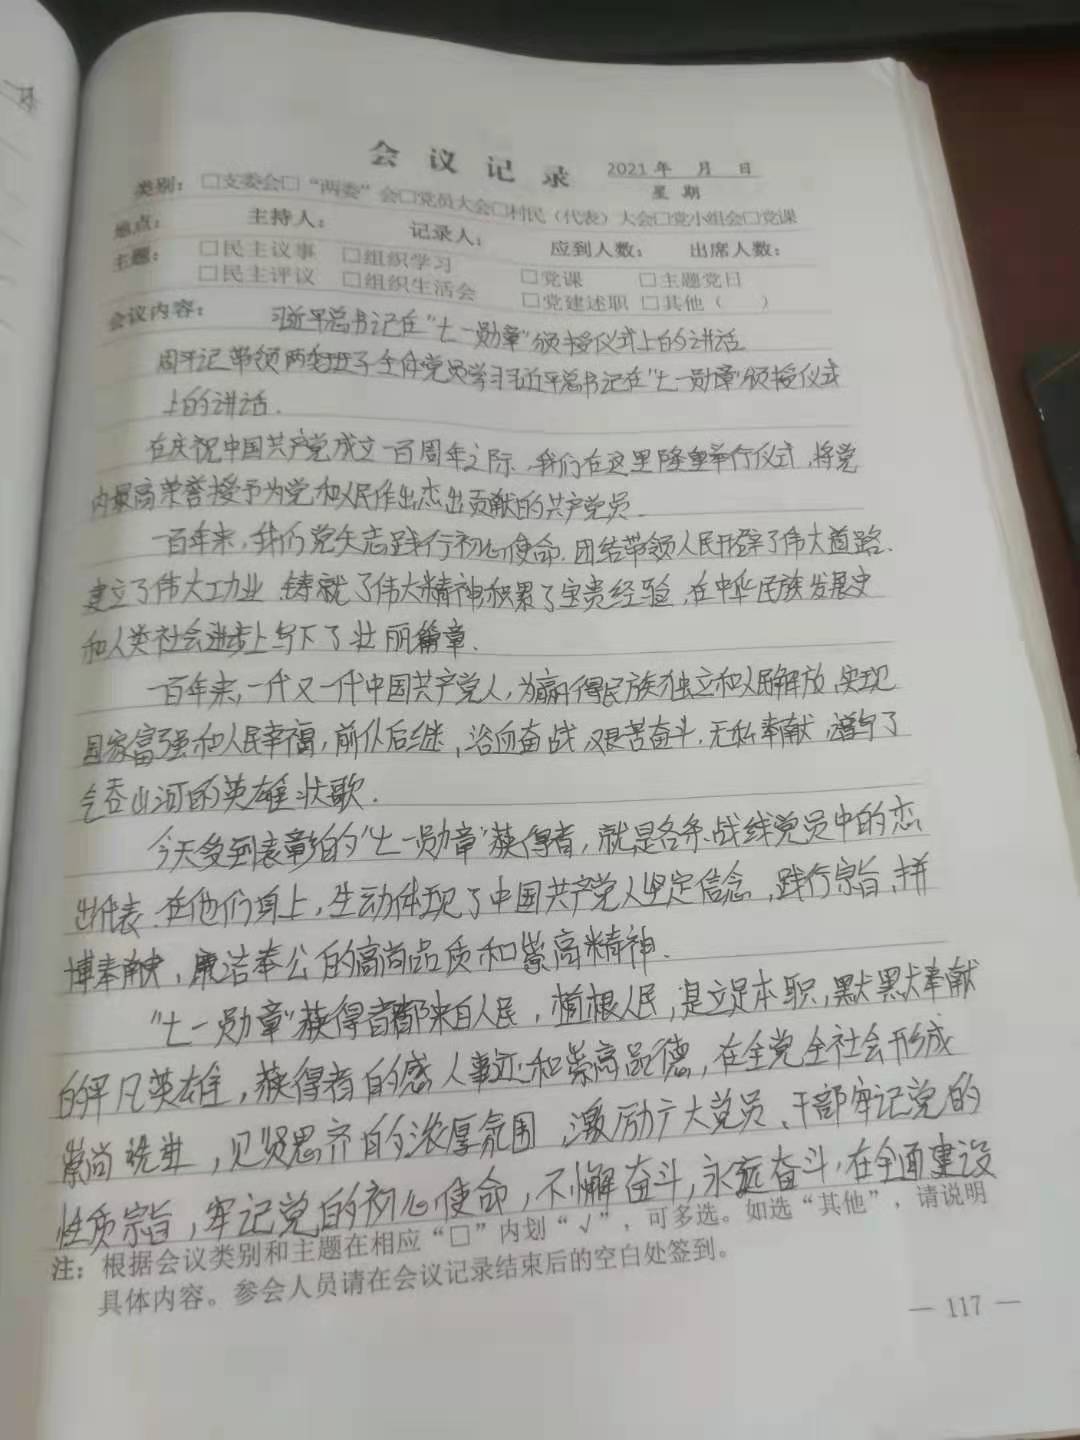 会 议 记 录 2021年 月 日
星 期
类别：□支委会□“两委”会□党员大会□村民（代表）大会□党小组会□党课
地点： 主持人： 记录人： 应到人数： 出席人数：
主题： □民主议事 □组织学习 □党课 □主题党日
□民主评议 □组织生活会 □党建述职 □其他（ ）
会议内容： 习近平总书记在“七一勋章”颁授仪式上的讲话
周书记带领两委班子全体党员学习习近平总书记在“七一勋章”颁授仪式
上的讲话.
在庆祝中国共产党成立一百周年之际,我们在这里隆重举行仪式,将党
内最高荣誉授予为党和人民作出杰出贡献的共产党员.
一百年来,我们党矢志践行初心使命,团结带领人民开辟了伟大道路.
建立了伟大功业,铸就了伟大精神积累了宝贵经验,在中华民族发展史
和人类社会进步上写下了壮丽篇章.
一百年来,一代又一代中国共产党人,为赢得民族独立和人民解放,实现
国家富强和人民幸福,前仆后继,浴血奋战,艰苦奋斗,无私奉献,谱写了
气吞山河的英雄壮歌.
今天受到表彰的“七一勋章”获得者,就是各条战线党员中的杰
出代表.在他们身上,生动体现了中国共产党人坚定信念,践行宗旨,拼
博奉献,廉洁奉公的高尚品质和崇高精神.
“七一勋章”获得者都来自人民,植根人民,是立足本职,默默奉献
的平凡英雄,获得者的感人事迹和崇高品德,在全党全社会形成
崇尚先进,见贤思齐的浓厚氛围,激励广大党员、干部牢记党的
性质宗旨,牢记党的初心使命,不懈奋斗,永远奋斗,在全面建设
注：根据会议类别和主题在相应“□”内划“√”，可多选。如选“其他”，请说明
具体内容。参会人员请在会议记录结束后的空白处签到。
— 117 —